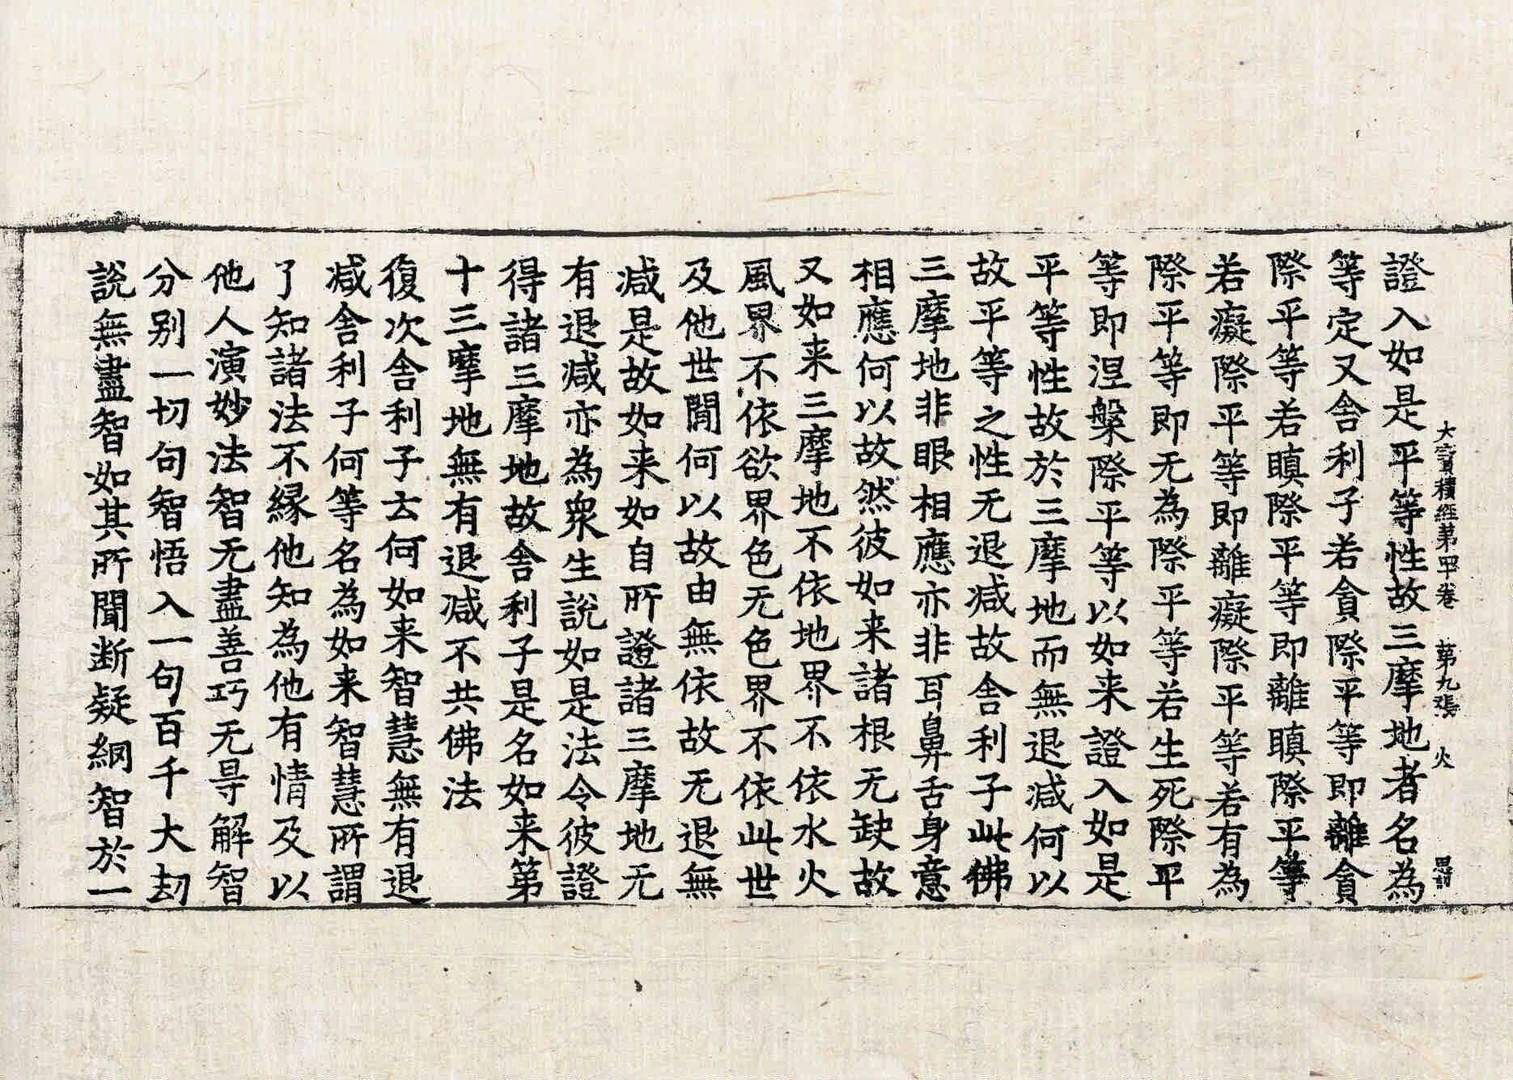 大寶積經第四十卷　第九張　火
證入如是平等性故三摩地者名為
等定又舍利子若貪際平等即離貪
際平等若瞋際平等即離瞋際平等
若癡際平等即離癡際平等若有為
際平等即无為際平等若生死際平
等即涅槃際平等以如来證入如是
平等性故於三摩地而無退减何以
故平等之性无退减故舍利子此佛
三摩地非眼相應亦非耳鼻舌身意
相應何以故然彼如来諸根无缺故
又如来三摩地不依地界不依水火
風界不依欲界色无色界不依此世
及他世間何以故由無依故无退無
减是故如来如自所證諸三摩地无
有退减亦為衆生說如是法令彼證
得諸三摩地故舍利子是名如来第
十三摩地無有退减不共佛法
復次舍利子云何如来智慧無有退
减舍利子何等名為如来智慧所謂
了知諸法不緣他知為他有情及以
他人演妙法智无盡善巧无㝵解智
分别一切句智悟入一句百千大劫
說無盡智如其所聞断疑網智於一